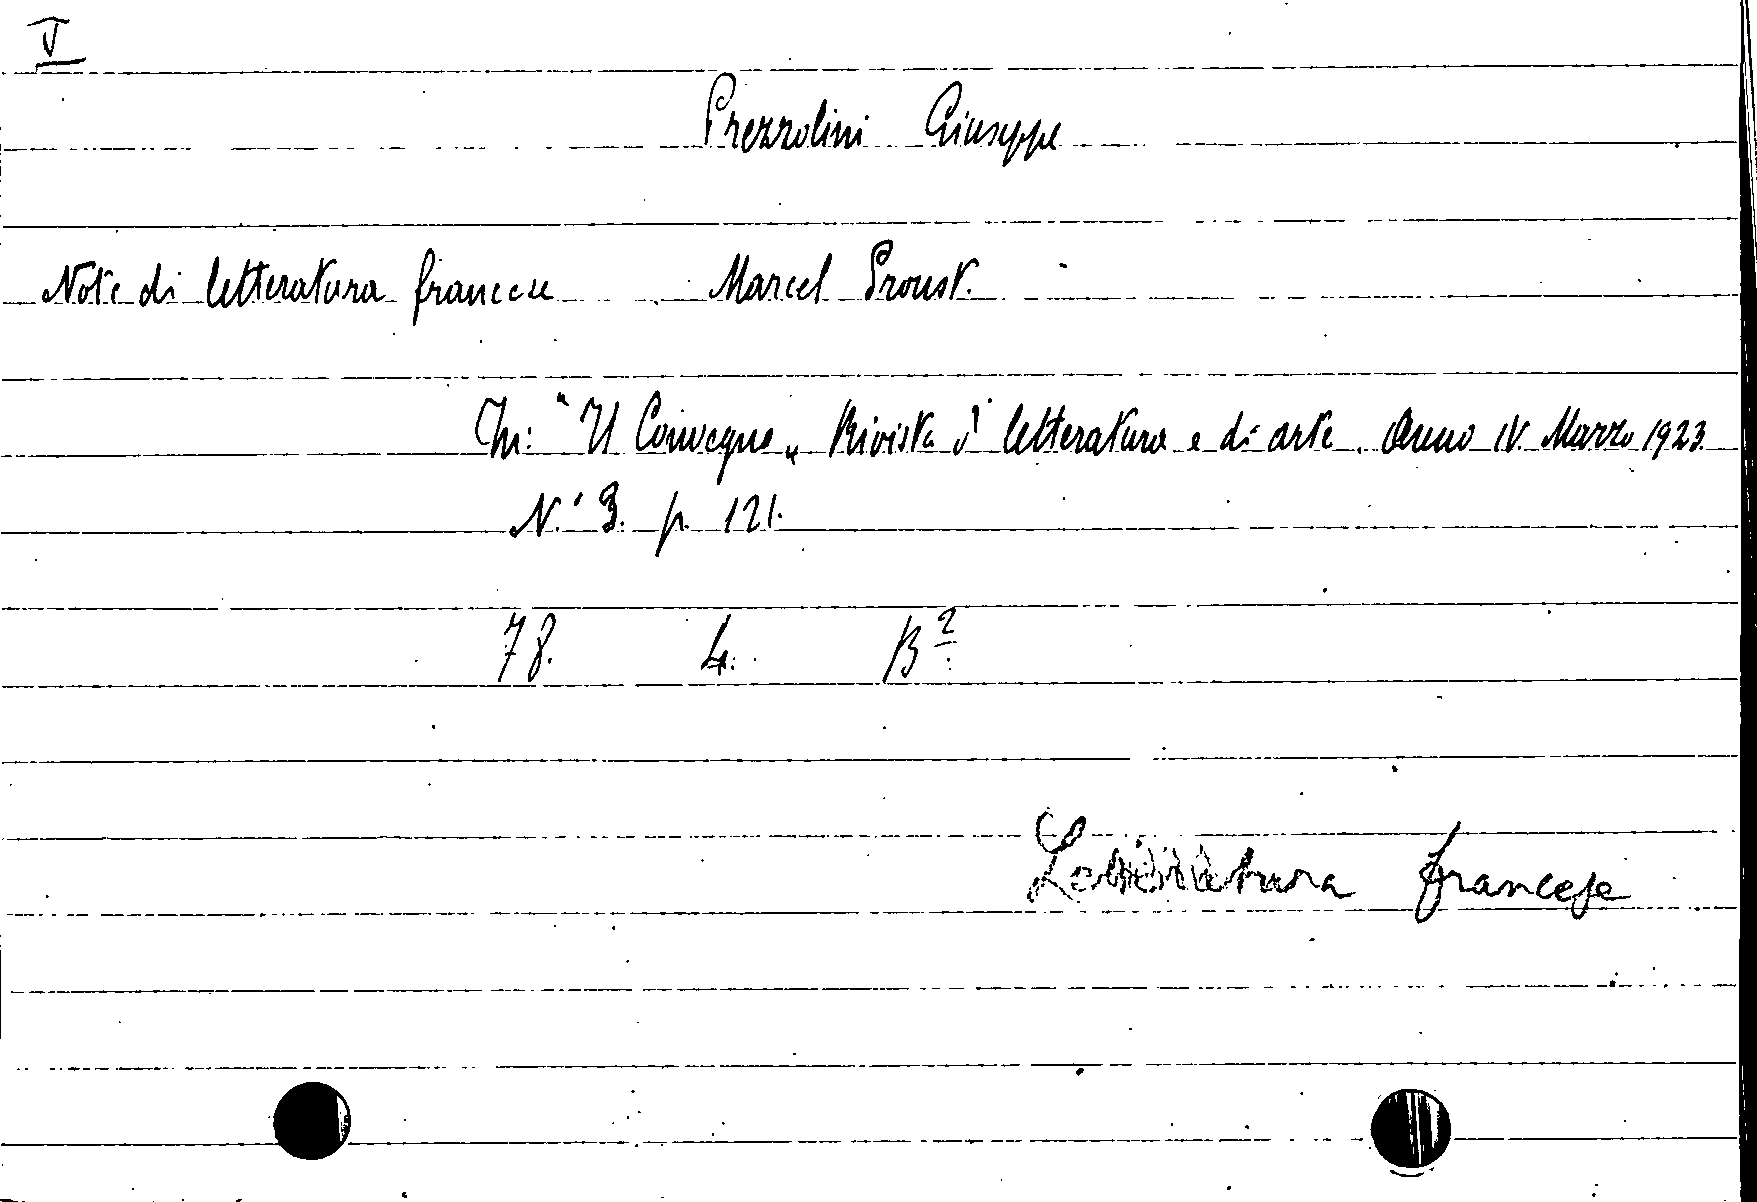 V
Prezzolini Giuseppe
Note di letteratura francese Marcel Proust.
In: "Il Convegno„ Rivista di letteratura e di arte. Anno IV. Marzo 1923.
N.° 3. p. 121.
78. 4. B²
Letteratura francese